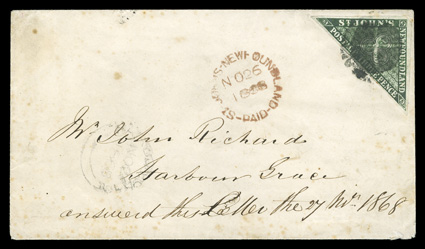 ST JOHN'S
NEWFOUNDLAND
ST JOHN'S NEWFOUNDLAND
NO 26
PAID
Mr John Richard
Harbour Grace
answered this Letter the 27 Novr 1868